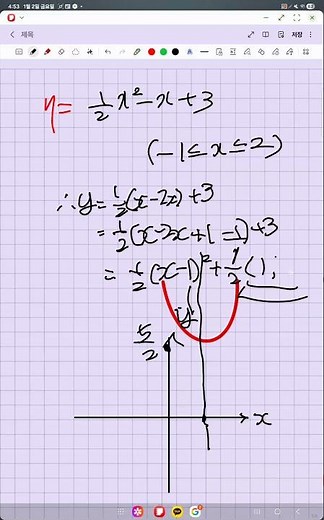 4:53 1월 2일 금요일
제목
저장
y = 1/2 x² - x + 3
(-1 ≤ x ≤ 2)
∴ y = 1/2 (x - 2x) + 3
= 1/2 (x - 2x + 1 - 1) + 3
= 1/2 (x - 1)² +
y
5/2
x